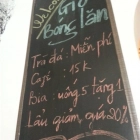 Welcome
Bông lăn
Trà đá: Miễn phí
Cafe: 15k
Bia: uống 5 tặng 1
Lẩu giảm, quà 20%